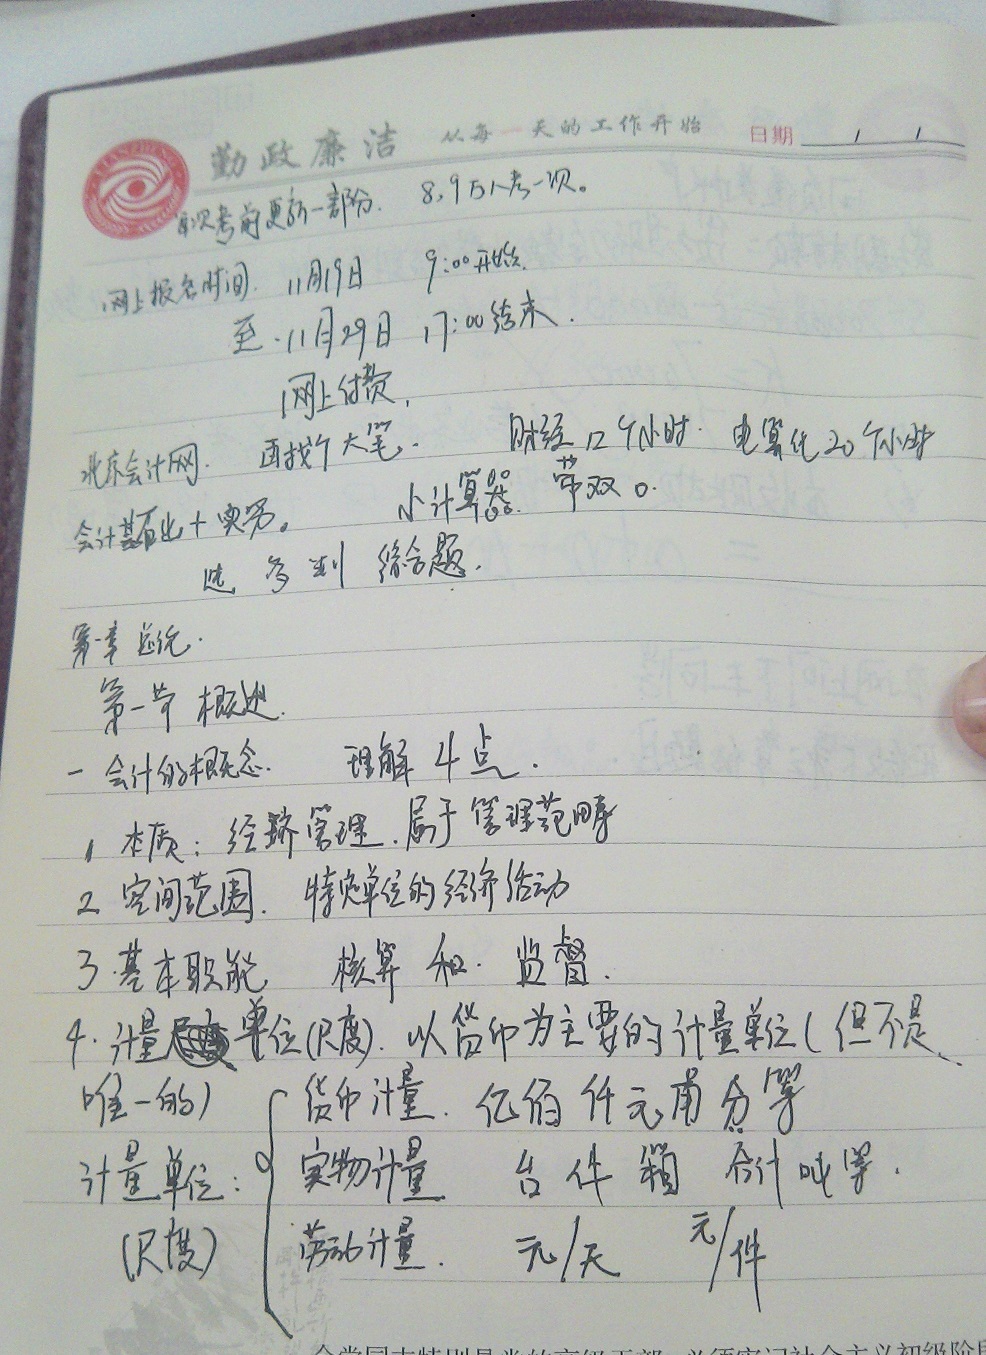 勤政廉洁 从每一天的工作开始 日期 / /
每次考前更新一部分. 8,9万人考一次。
网上报名时间. 11月19日 9:00开始.
至.11月29日 17:00结束.
网上付费.
北京会计网. 再找个大笔. 财经12个小时. 电算化20个小时
会计基础+实务。 小计算器 带双0.
选 多 判 综合题.
第一章 总论.
第一节 概述.
一 会计的概念. 理解4点.
1 本质: 经济管理.属于管理范畴
2 空间范围. 特定单位的经济活动
3.基本职能 核算 和. 监督.
4.计量 单位(尺度). 以货币为主要的计量单位(但不是
唯一的)
货币计量. 亿佰仟元角分等
计量单位: 实物计量 台 件 箱 吨等.
(尺度) 劳动计量. 元/天 元/件